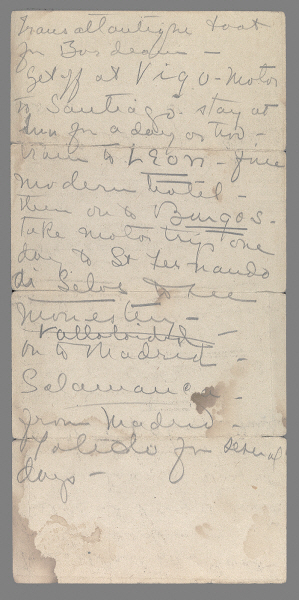 Transatlantique boat
for Bordeaux -
Get off at Vigo - motor
to Santiago. stay at
Inn for a day or two -
train to LEON - fine
modern hotel -
then on to Burgos -
take motor trip one
day to St Fernando
di Selos to see
Monestery -
Valladolid -
on to Madrid -
Salamanca -
from Madrid -
Toledo for several
days -